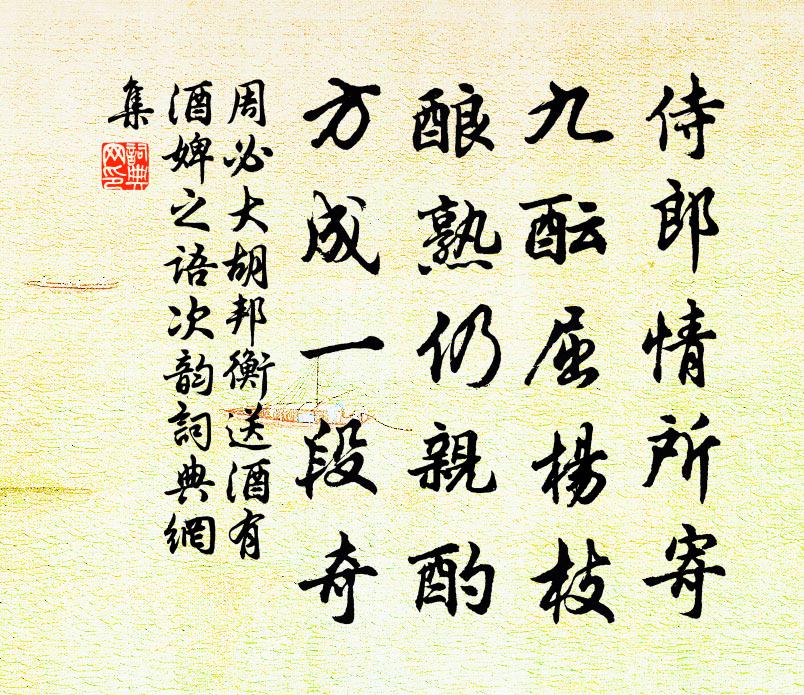 侍郎情所寄
九酝屈楊枝
酿熟仍親酌
方成一段奇
周必大胡邦衡送酒有
酒婢之语次韵詞典網
集
詞典网印